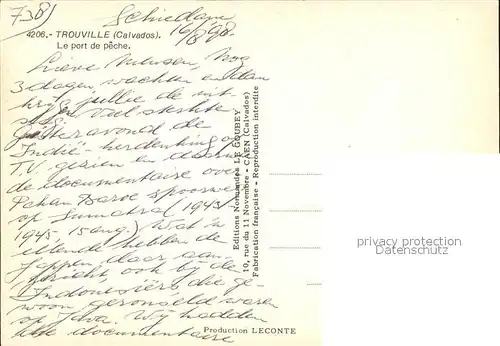 738)
Schiedam
16/8 '98
4206.- TROUVILLE (Calvados).
Le port de pêche.
Lieve Mensen, Nog
3 dagen, wachten en dan
krijgen jullie de uit
Gisteravond de
Indië-herdenking op
T.V. gezien en daarna
de documentaire over
Pakan Baroe spoorweg
op Sumatra (1943/
1945 - 15 aug.) Wat 'n
ellende hebben de
Jappen daar aan-
gericht ook bij de
Indonesiërs die ge-
woon geronseld waren
op Java. Wij hadden
documentaire
Editions Normandes LE GOUBEY
10, rue du 11 Novembre - CAEN (Calvados)
Fabrication française - Reproduction interdite
Production LECONTE
privacy protection
Datenschutz